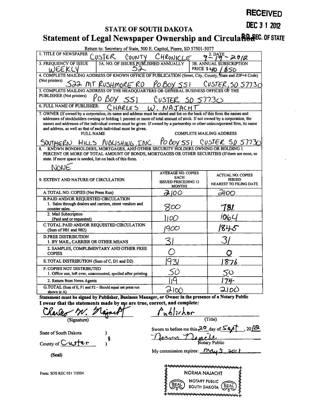 RECEIVED
DEC 31 2012
STATE OF SOUTH DAKOTA
Statement of Legal Newspaper Ownership and Circulation SEC. OF STATE
Return to: Secretary of State, 500 E. Capitol, Pierre, SD 57501-5077
1. TITLE OF NEWSPAPER CUSTER COUNTY CHRONICLE 2. DATE 9-19-2012
3. FREQUENCY OF ISSUE WEEKLY
3A. NO. OF ISSUES PUBLISHED ANNUALLY 52
3B. ANNUAL SUBSCRIPTION PRICE $
4. COMPLETE MAILING ADDRESS OF KNOWN OFFICE OF PUBLICATION (Street, City, County, State and ZIP+4 Code) (Not printers)
522 MT RUSHMORE RD PO BOY 551 CUSTER, SD 57730
5. COMPLETE MAILING ADDRESS OF THE HEADQUARTERS OR GENERAL BUSINESS OFFICES OF THE PUBLISHER (Not printers)
PO BOX 551 CUSTER SD 57730
6. FULL NAME OF PUBLISHER: CHARLES W. NAJACHT
7. OWNER (If owned by a corporation, its name and address must be stated and list on the back of this form the names and
addresses of stockholders owning or holding 1 percent or more of total amount of stock. If not owned by a corporation, the
names and addresses of the individual owners must be given. If owned by a partnership or other unincorporated firm, its name
and address, as well as that of each individual must be given.
FULL NAME COMPLETE MAILING ADDRESS
SOUTHERN HILLS PUBLISHING INC. PO BOY 551 CUSTER SD 57730
8. KNOWN BONDHOLDERS, MORTGAGEES, AND OTHER SECURITY HOLDERS OWNING OR HOLDING 1
PERCENT OR MORE OF TOTAL AMOUNT OF BONDS, MORTGAGES OR OTHER SECURITIES (If there are none, so
state. If more space is needed, list on back of this form.
NONE
9. EXTENT AND NATURE OF CIRCULATION
AVERAGE NO. COPIES EACH ISSUED PRECEDING 12 MONTHS
ACTUAL NO. COPIES ISSUED NEAREST TO FILING DATE
A. TOTAL NO. COPIES (Net Press Run) 2100 2100
B. PAID AND/OR REQUESTED CIRCULATION
1. Sales through dealers and carriers, street vendors and counter sales. 800 781
2. Mail Subscription (Paid and or requested) 1100 1064
C. TOTAL PAID AND/OR REQUESTED CIRCULATION (Sum of 9B1 and 9B2) 1900 1845
D. FREE DISTRIBUTION
1. BY MAIL, CARRIER OR OTHER MEANS 31 31
2. SAMPLES, COMPLIMENTARY AND OTHER FREE COPIES 0 0
E. TOTAL DISTRIBUTION (Sum of C, D1 and D2) 1931 1876
F. COPIES NOT DISTRIBUTED
1. Office use, left over, unaccounted, spoiled after printing 50 50
2. Return from News Agents 119 174
G. TOTAL (Sum of E, F1 and F2 - Should equal net press run shown in A) 2100 2100
Statement must be signed by Publisher, Business Manager, or Owner in the presence of a Notary Public
I swear that the statements made by me are true, correct, and complete:
Charles W. Najacht Publisher
(Signature) (Title)
State of South Dakota )
§
County of Custer )
Sworn to before me this 20 day of Sept, 2012
Norma Najacht
Notary Public
My commission expires:
(Seal)
Form: SOS REC 051 7/2004
NORMA NAJACHT
NOTARY PUBLIC
SOUTH DAKOTA
SEAL
SEAL